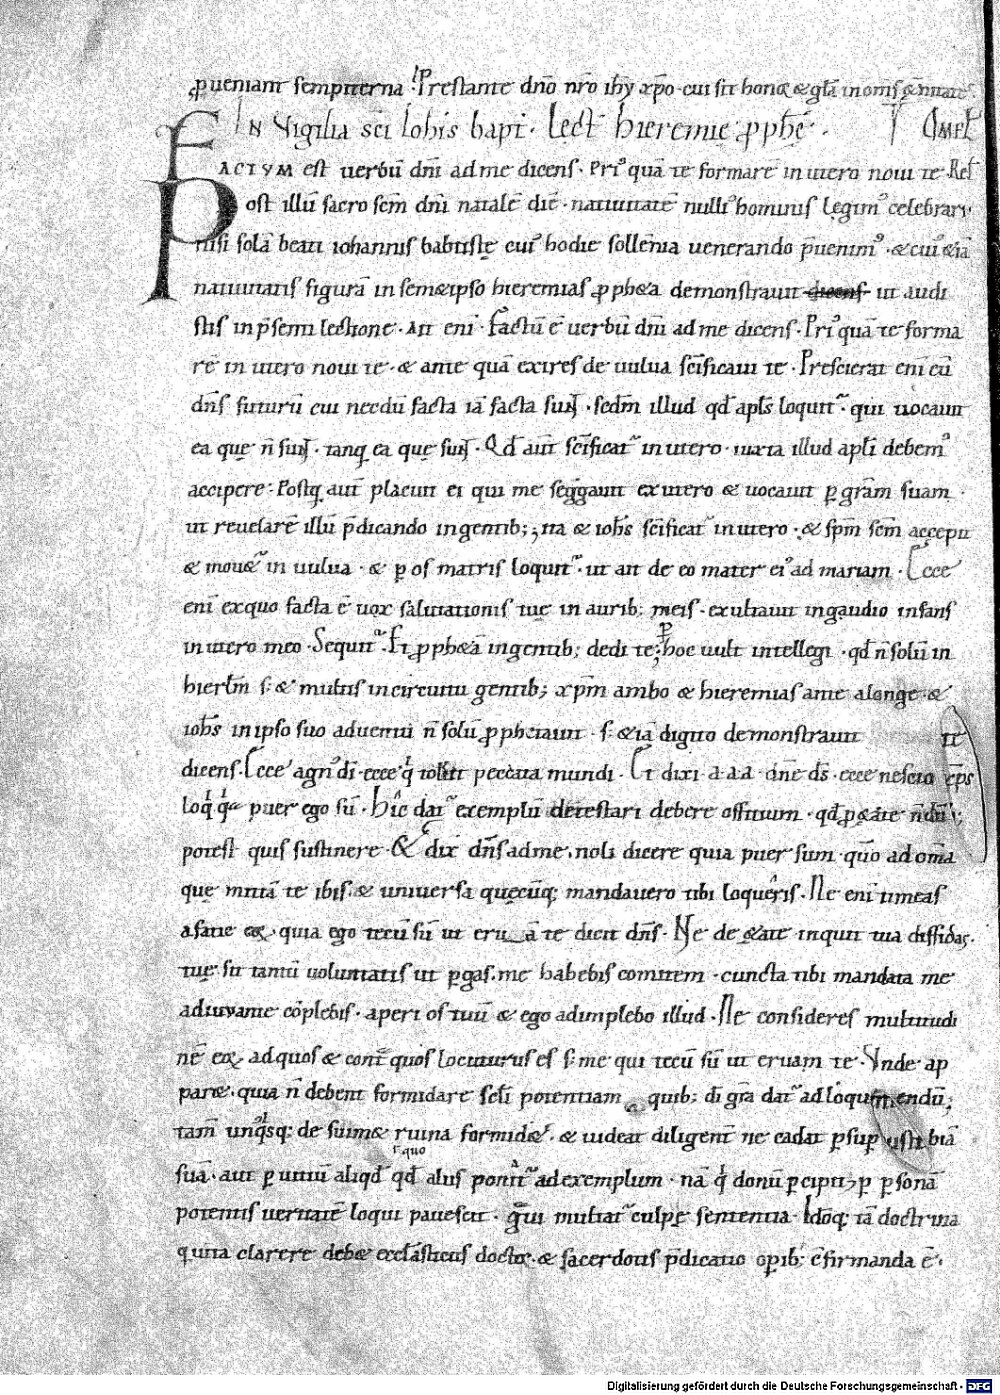 pueniant sempiterna. Prestante dn̄o nr̄o ih̄u xp̄o cui sit honor & gl̄a in om̄s
In Vigilia sc̄i Ioh̄is bapt̄. Lect̄ hieremie pph̄e.
FACTVM est uerbū dn̄i ad me dicens. Priꝰ quā te formarē in utero noui te. Rel̄
Post illū sacro sc̄m dn̄i natalē diē. natiuitatē nulliꝰ hominis legimꝰ celebrari
nisi solā beati iohannis babtistę cuiꝰ hodie sollēnia uenerando p̄uenimꝰ. & cuiꝰ &iā
natiuitatis figurā in sem&ipso hieremias pph&a demonstrauit ut audi
stis in p̄senti lectione. Ait eni. Factū ē uerbū dn̄i ad me dicens. Priꝰ quā te forma
rē in utero noui te. & ante quā exires de uulua sc̄ificaui te. Prescierat enī eū
dn̄s futurū cui necdū facta iā facta sunt. sed̄m illud qd̄ apl̄s loquit͛. qui uocauit
ea que n̄ sunt. tanq̄ ea que sunt. Qd̄ aut̄ sc̄ificat͛ in utero. iuxta illud apl̄i debemꝰ
accipere. Postq̄ aut̄ placuit ei qui me seg̃gauit ex utero & uocauit p gr̄am suam.
ut reuelarē illū p̄dicando in gentib; ita & ioh̄s sc̄ificat͛ in utero. & sp̄m sc̄m accepit
& mou&͛ in uulua. & p os matris loquit͛. ut ait de eo mater eiꝰ ad mariam. Ecce
enī ex quo facta ē uox salutationis tuę in aurib; meis. exultauit in gaudio infans
in utero meo. Sequit͛. Et pph&ā in gentib; dedi te; hoc uult intellegi. qd̄ n̄ solū in
hierl̄m s; & multis in circuitu gentib; xp̄m ambo & hieremias ante a longe. &
ioh̄s in ipso suo aduentu n̄ solū pph&auit. s; &iā digito demonstrauit
dicens. Ecce agnꝰ di. ecce q̇ tollit peccata mundi. Et dixi a. a. a. dn̄e ds̄. ecce nescio
loq̇ q̇a puer ego sū. Hic dat͛ exemplū detestari debere offitium. qd̄ p &atē
potest quis sustinere. & dix̄ dn̄s ad me. noli dicere quia puer sum. quō ad om̄a
quę mittā te ibis. & uniuersa quęcūq; mandauero tibi loqueris. Ne enī timeas
a facie eoꝝ. quia ego tecū sū ut eruā te dicit dn̄s. Ne de &ate inquit tua diffidas.
tuę sit tantū uoluntatis ut pgas. me habebis comitem. cuncta tibi mandata me
adiuuante cōplebis. aperi os tuū & ego adimplebo illud. Ne consideres multitudi
nē eoꝝ ad quos & cont̄ quos locuturus es s; me qui tecū sū ut eruam te. Vnde ap
par&. quia n̄ debent formidare sc̄li potentiam quib; di gr̄a dat͛ ad loquendū;
tam̄ unq̇sq; de suim& ruina formid&. & uideat diligent̄ ne cadat p
suā. aut p uitiū aliqd̄ qd̄ alius ponit͛ ad exemplum. nā q̇ donū pcipit p psonā
potentis ueritatē loqui pauescit. g̃ui mulctat͛ culpę sententia. Idōq; iā doctrina
quita clarere deb& eccl̄asticus doctor. & sacerdotis p̄dicatio opib; cfirmanda ē.